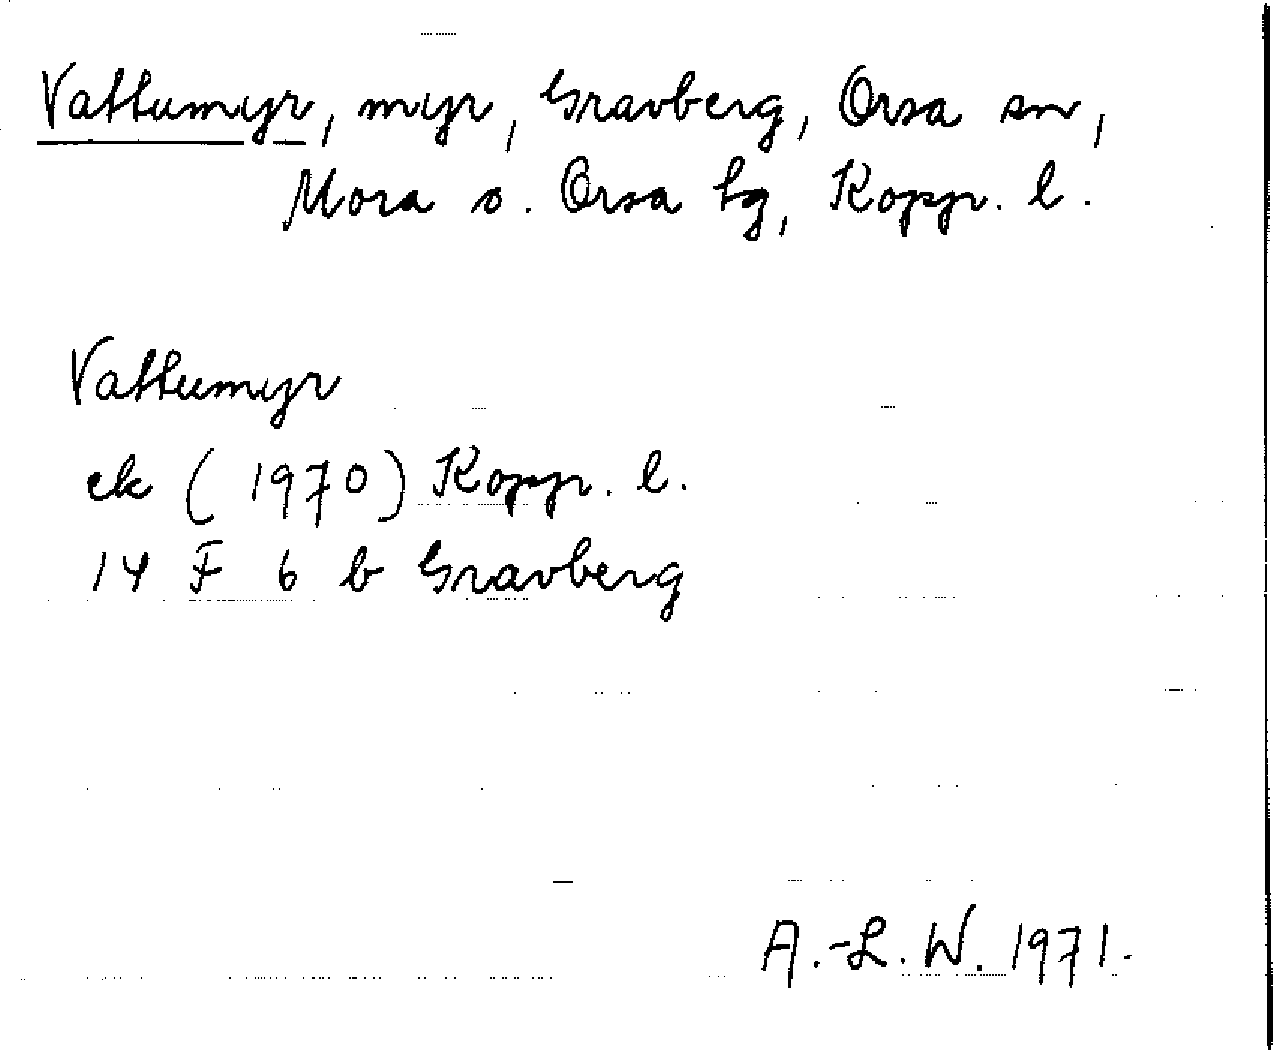 Vattumyr, myr, Gravberg, Orsa sn,
Mora o. Orsa tg, Kopp. l.
Vattumyr
ek (1970) Kopp. l.
14 F 6 b Gravberg
A.-L. W. 1971.